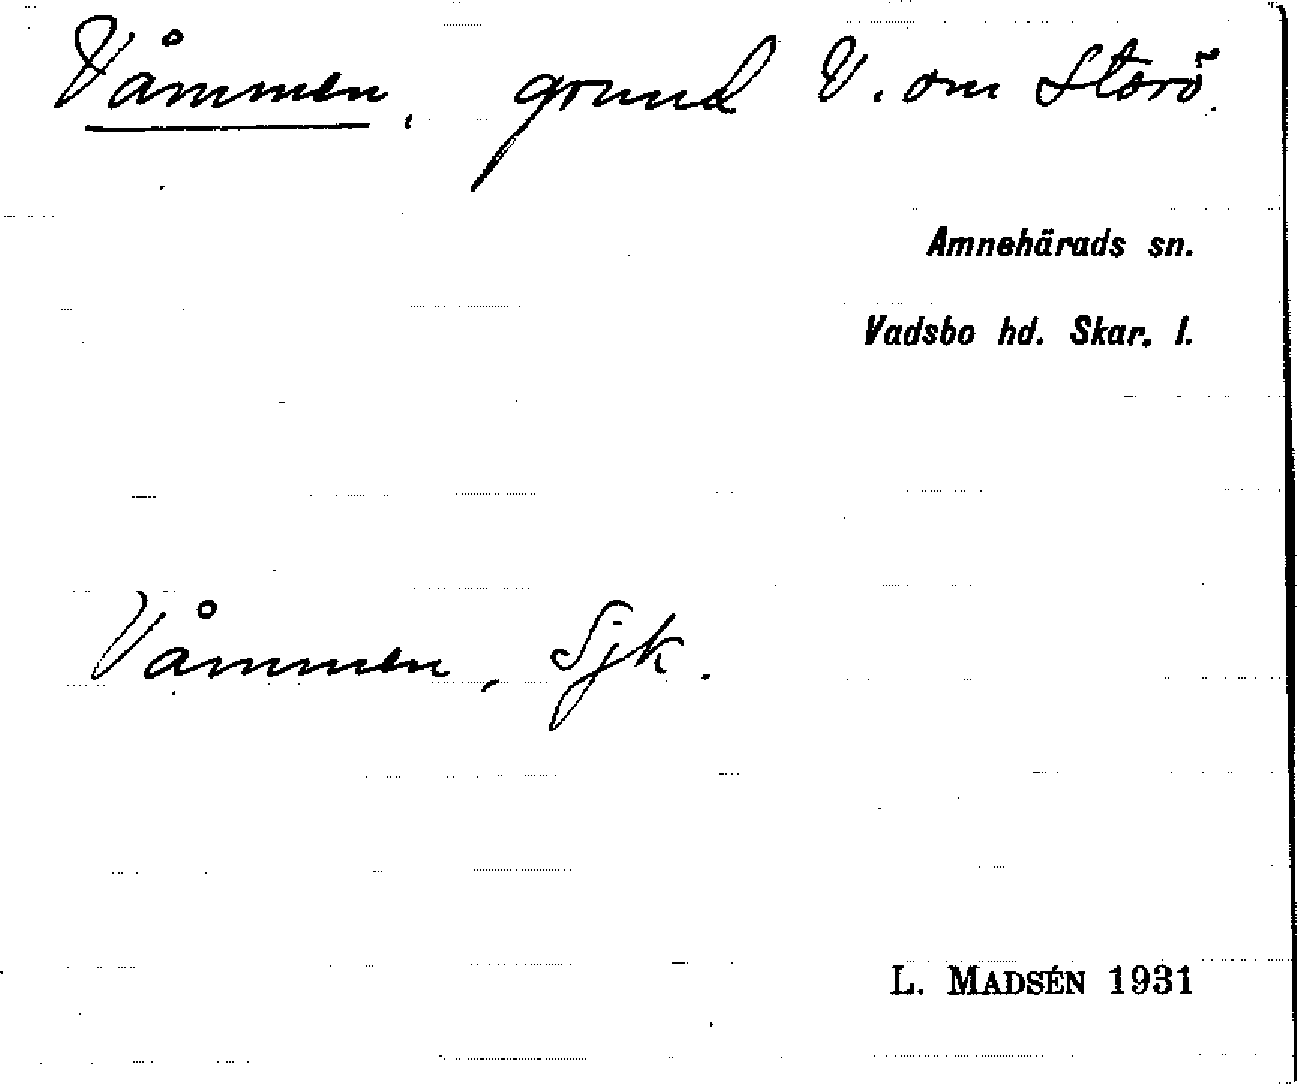 Våmmen, grund V. om Storö.
Amnehärads sn.
Vadsbo hd. Skar. l.
Våmmen, Sjk.
L. MADSÉN 1931